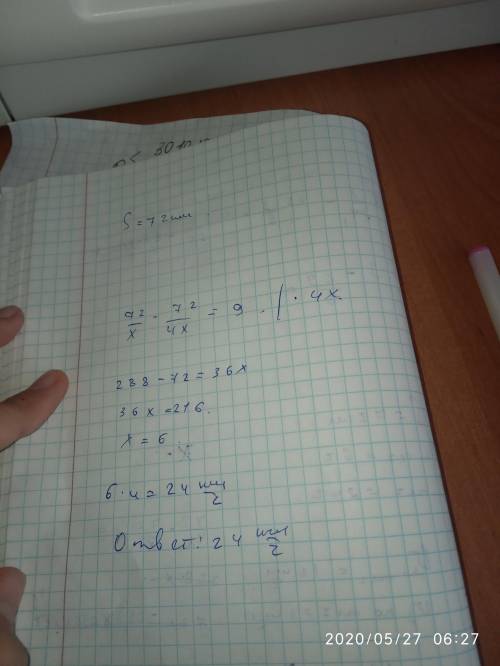 30
S = 72 км
72/x - 72/4x = 9 . | · 4x
288 - 72 = 36x
36x = 216.
x = 6
6 · 4 = 24 км/г
Ответ: 24 км/г
2020/05/27 06:27